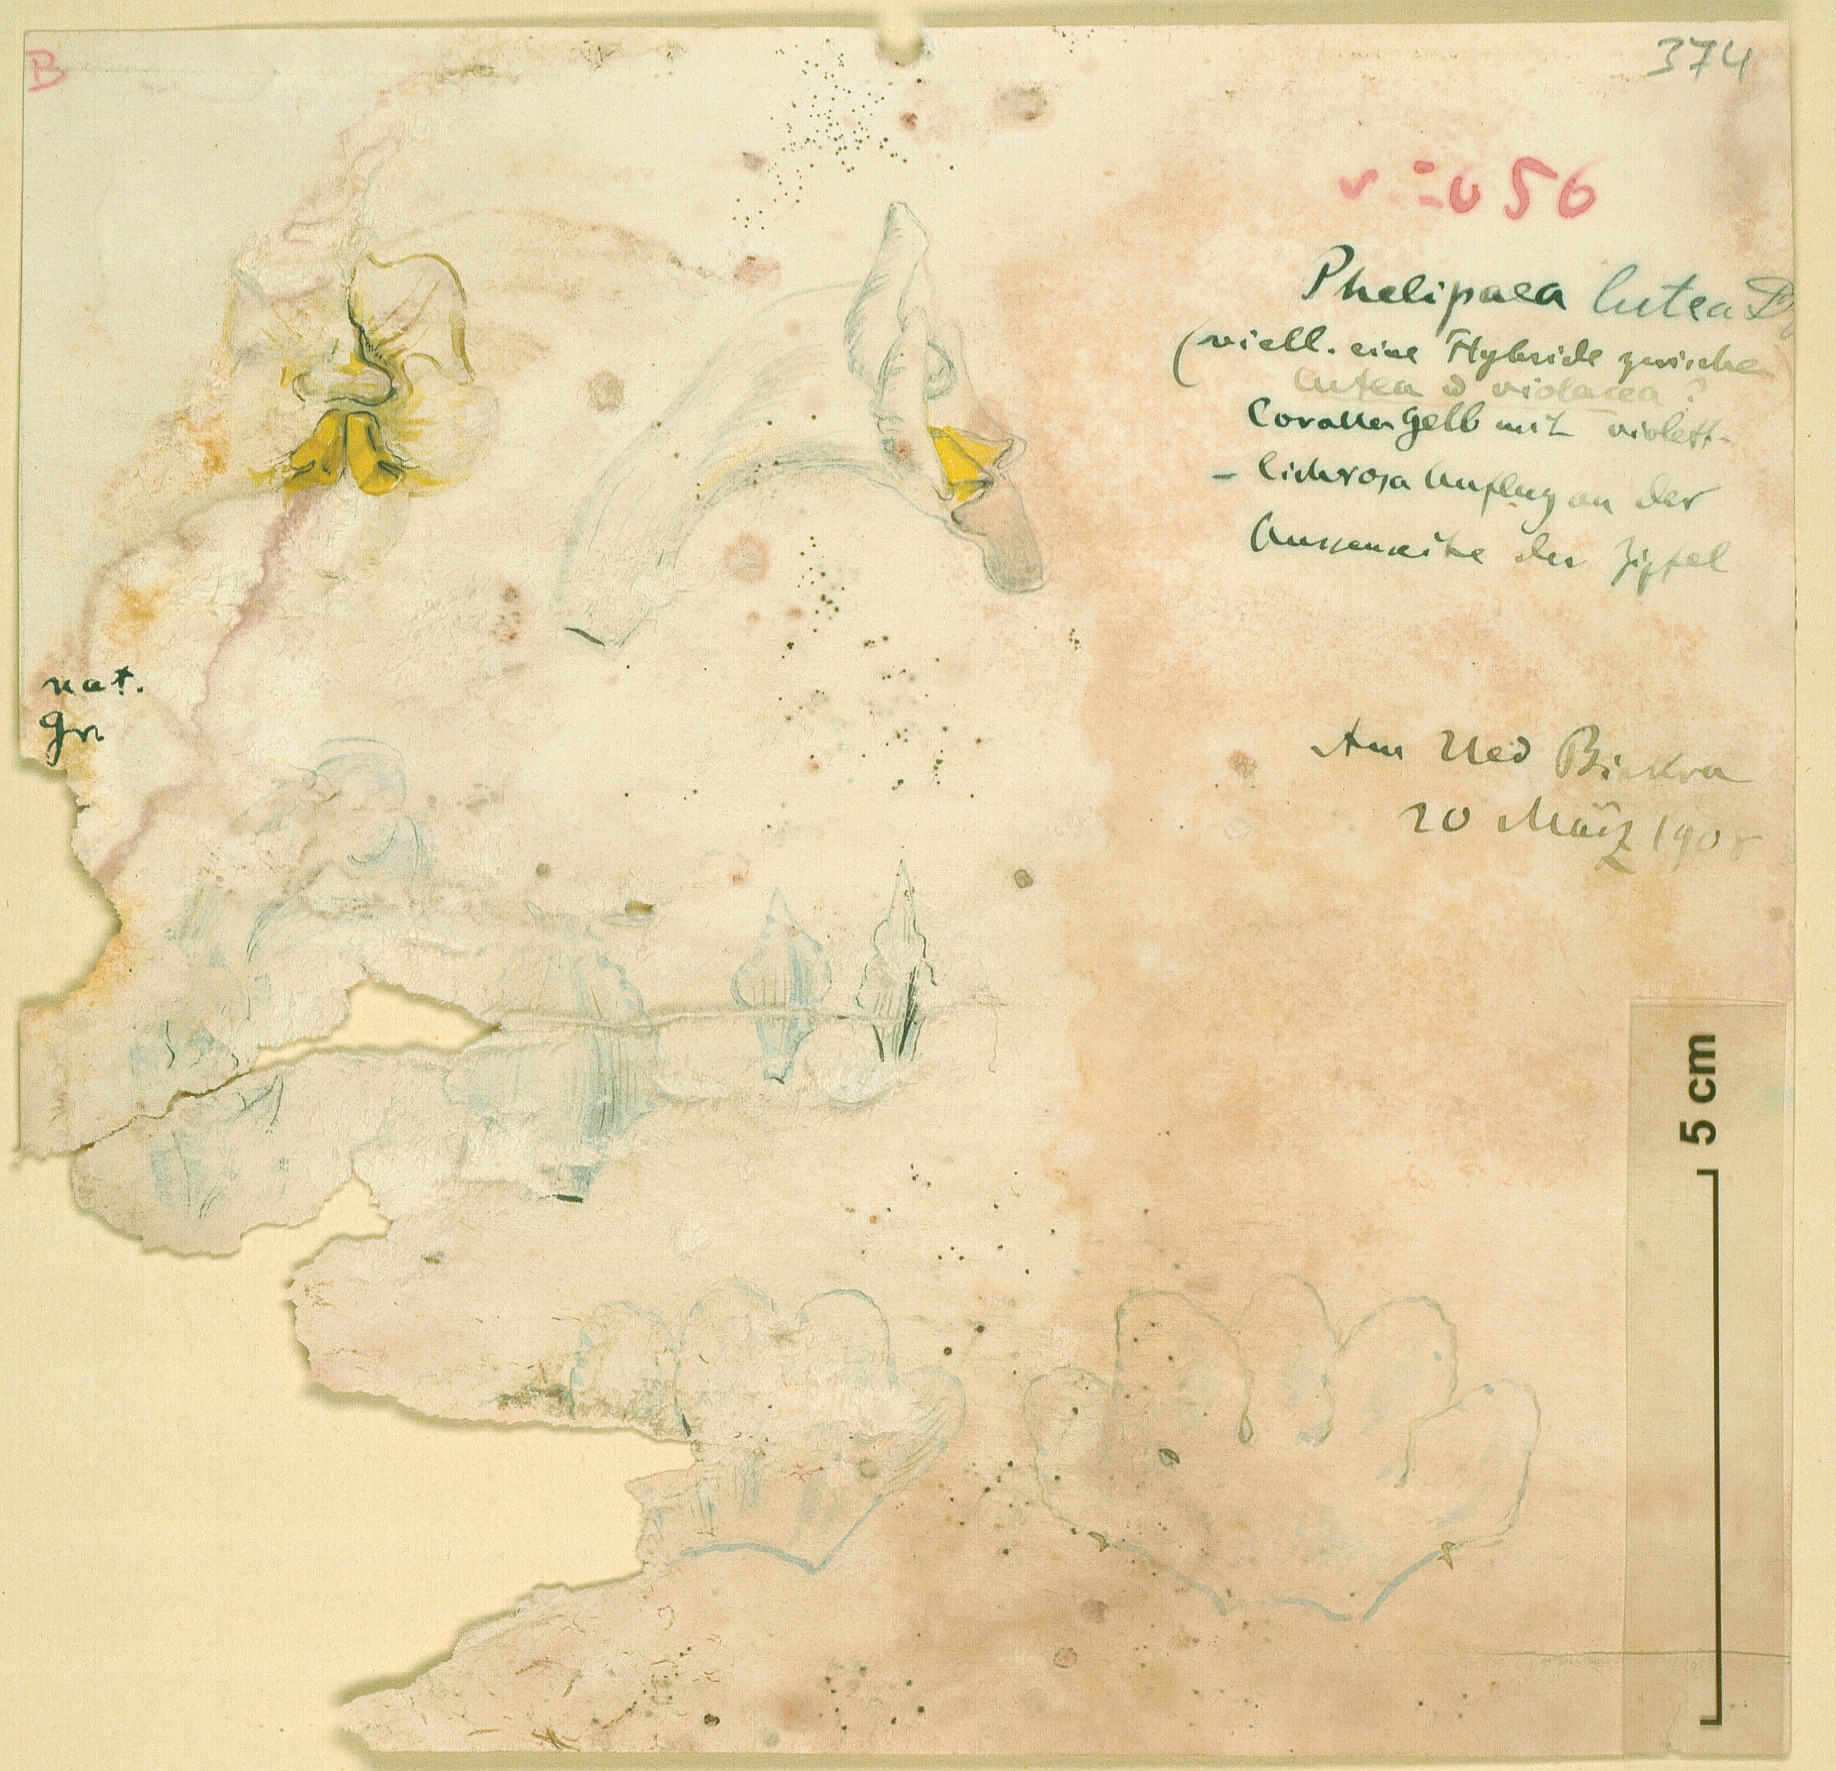 B
374
056
Phelipaea lutea
(viell. eine Hybride zwischen
lutea & violacea?
Corolle Gelb mit violett-
- lichrosa Anflug an der
Aussenseite der Zipfel
nat.
gr
Am Ued Biskra
20 März 1908
5 cm